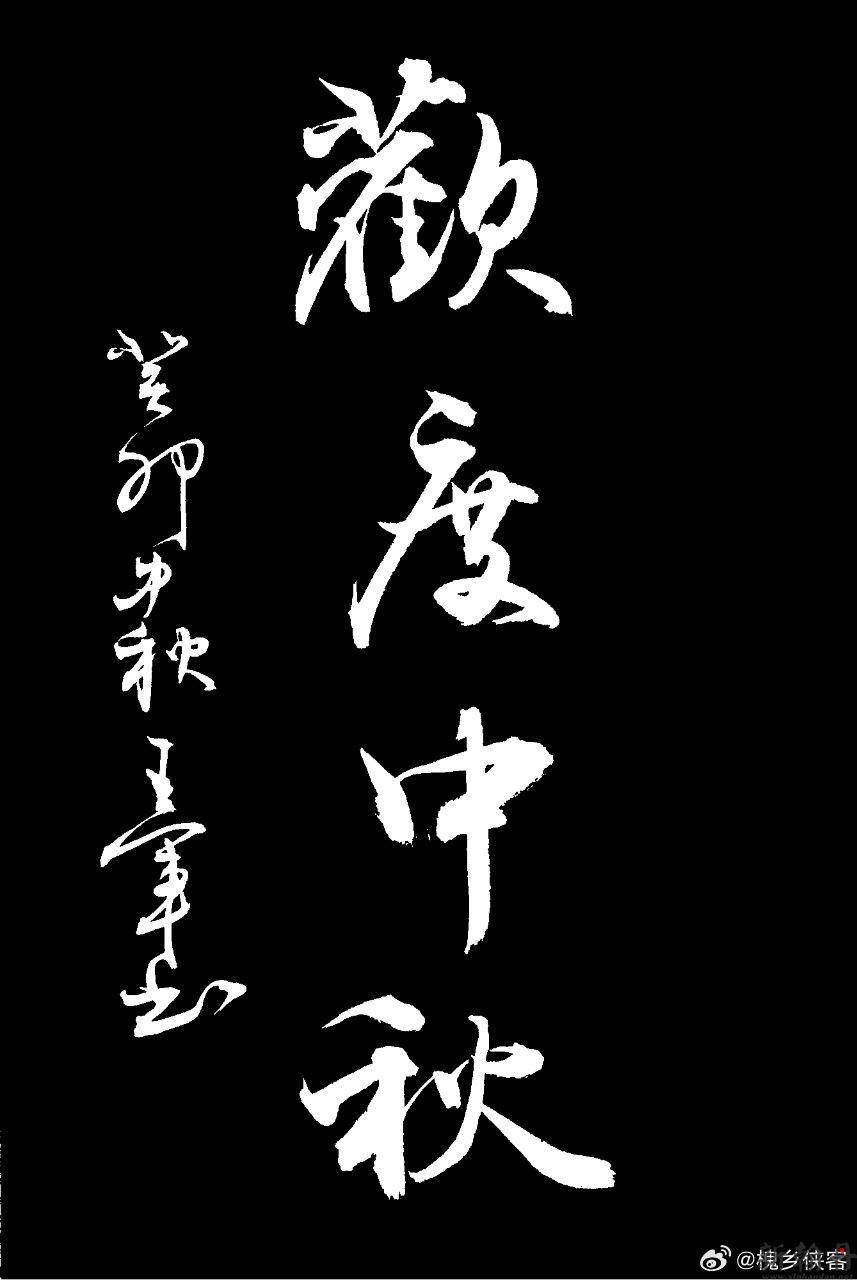 歡度中秋
癸卯中秋王軍书
@槐乡侠客